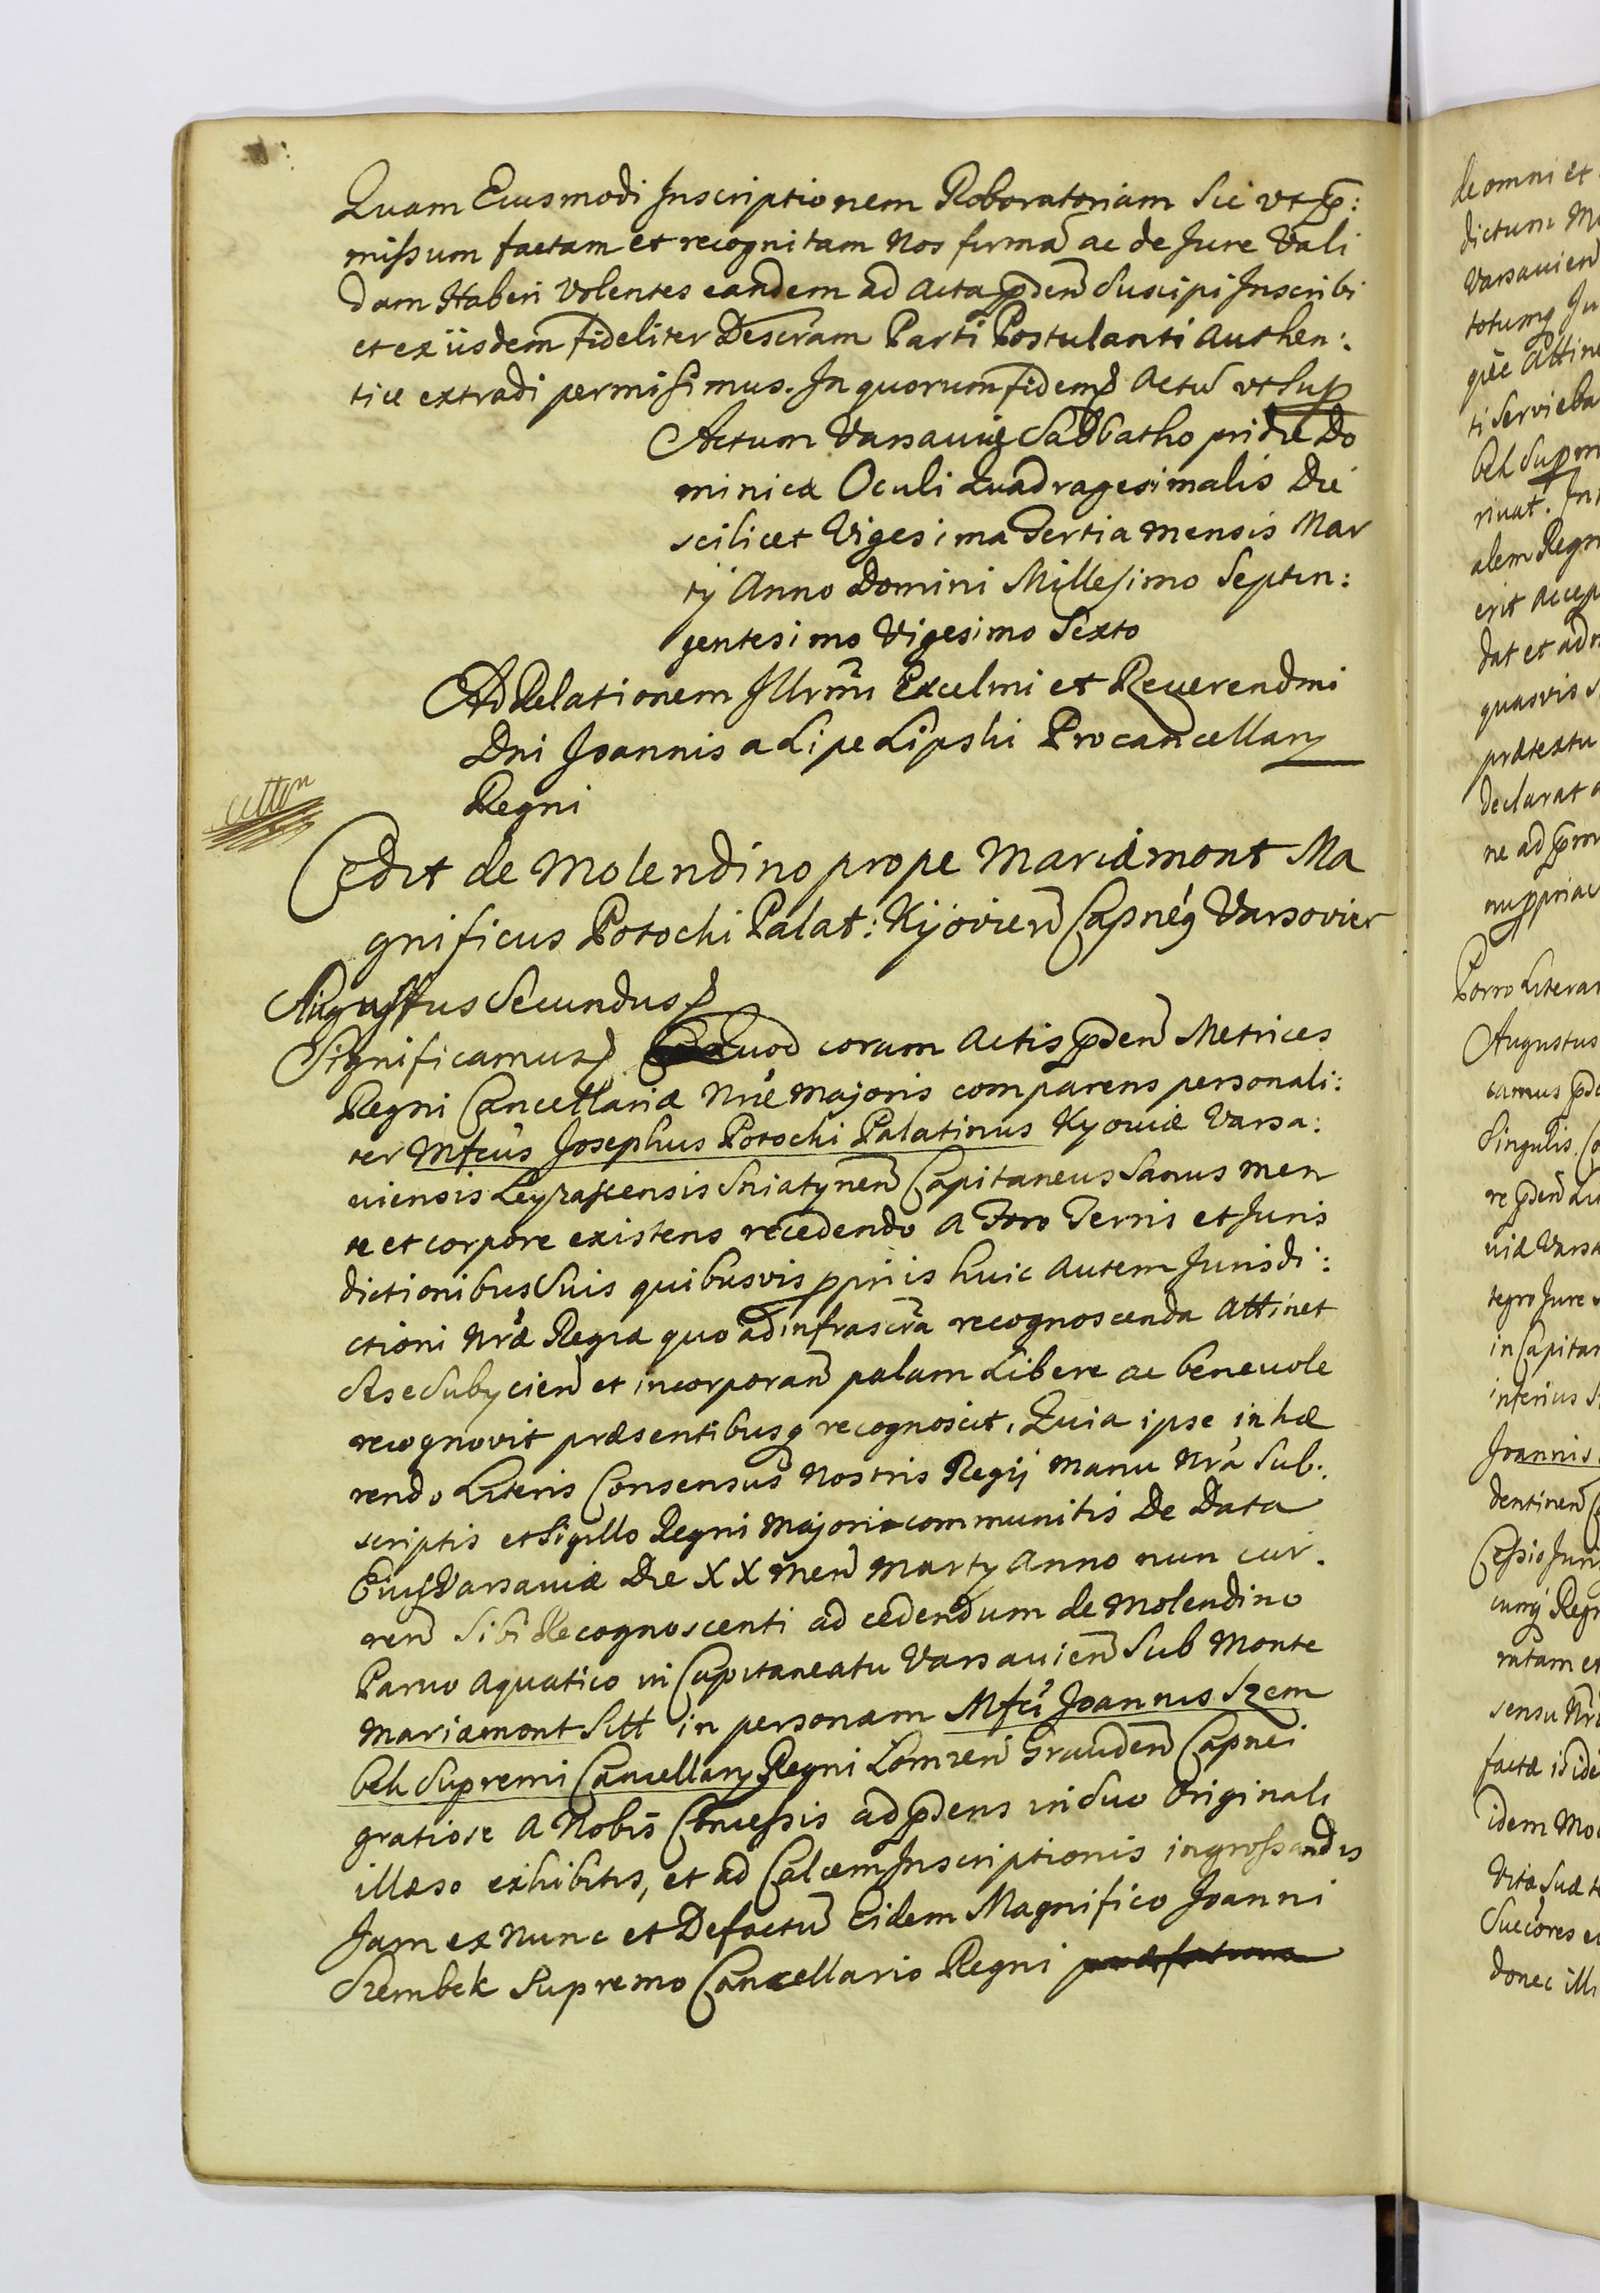 Quam Eiusmodi Inscriptionem Roboratoriam Sic ut p̄:
missum factam et recognitam Nos firmā ac de Jure Vali
dam Haberi Volentes eandem ad Acta p̄den̄ Suscipi Inscribi
et ex iisdem fideliter Descram Parti Postulanti Authen:
tice extradi permisimus. In quorum fidem Actū ut sup
Actum Varsaviæ Sabbatho pridie Do
minicæ Oculi Quadragesimalis Die
scilicet Vigesima Tertia mensis Mar
tij Anno Domini Millesimo Septin:
gentesimo Vigesimo Sexto
Ad Relationem Illrmi Excelmi et Reverendmi
Dni Joannis a Lipe Lipski Procancellarij
Regni
Cedit de Molendino prope Mariæmont Ma
gnificus Potocki Palat: Kijovien̄ Capnég Varsovien
Augustus Secundus
Significamus Quod coram Actis p̄den̄ Metrices
Regni Cancellariæ Nræ Majoris comparens personali:
ter Mfcus Josephus Potocki Palatinus Kyoviæ Varsa:
viensis Leyzaiscensis Sniatynen̄ Capitaneus Sanus men
te et corpore existens recedendo a Foro Terris et Juris
dictionibus Suis quibusvis pprijs huic autem Jurisdi:
ctioni Nræ Regiæ quo ad infrascra recognoscenda attinet
se Subycien̄ et incorporan̄ palam Libere ac benevole
recognovit præsentibusq recognoscit, Quia ipse inhæ
rendo Literis Consensus Nostris Regij Manu Nrá Sub:
scriptis et Sigillo Regni Majori communitis De Data
Eius Varsaviæ Die XX Men̄ Marty Anno nun cur:
ren̄ Sibi Recognoscenti ad cedendum de Molendino
Parvo Aquatico in Capitaneatu Varsavien̄ Sub Monte
Mariæmont Sitt in personam Mfci Joannis Szem
bek Supremi Cancellarij Regni Lomzen̄ Grauden̄ Capnei
gratiose A Nobis Concessis ad p̄dens in Suo Originali
illæso exhibitis, et ad Calcem Inscriptionis ingrossandis
Jam ex nunc et Defactū Eidem Magnifico Joanni
Szembek Supremo Cancellario Regni
de omni et
dictum
Varsavien̄
totumq
Attine
ti
bek Suprm
alem Regn
erit accep
dat et
quasvis
prætextu
declarat
ne ad
Porro Literar
Augustus
camus
Singulis
viæ Varsa
tegro Jure
in Capitan
inferius
Joannis
dentinen̄
Cessio Juri
ratam et
sensu Nr
factæ
idem
Vitæ Suæ
Succores
donec illi